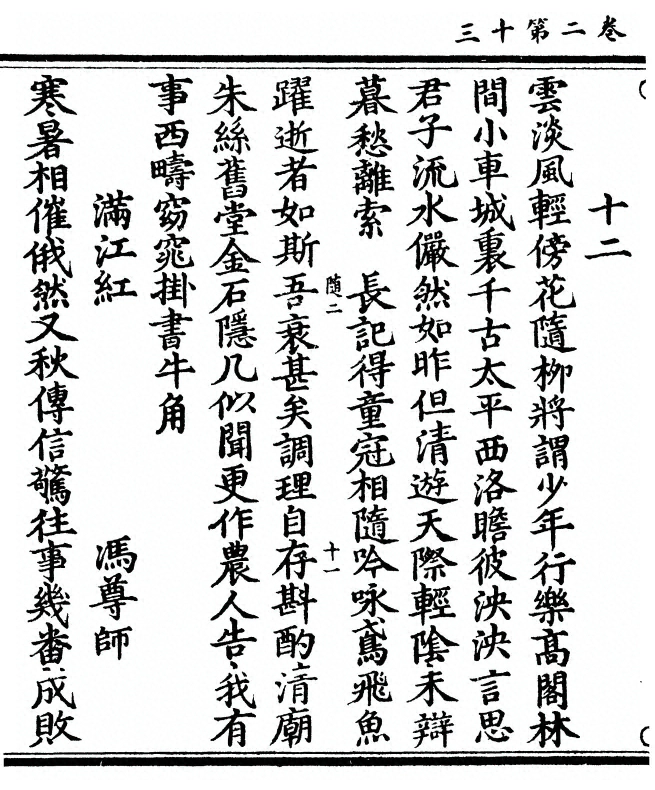 卷二第十三
十二
雲淡風輕傍花隨柳將謂少年行樂高閣林
間小車城裏千古太平西洛瞻彼泱泱言思
君子流水儼然如昨但清遊天際輕陰未辯
暮愁離索　長記得童冠相隨吟咏鳶飛魚
隨二
十一
躍逝者如斯吾衰甚矣調理自存斟酌清廟
朱絲舊堂金石隱几似聞更作農人告我有
事西疇窈窕掛書牛角
滿江紅　馮尊師
寒暑相催俄然又秋傳信驚往事幾番成敗